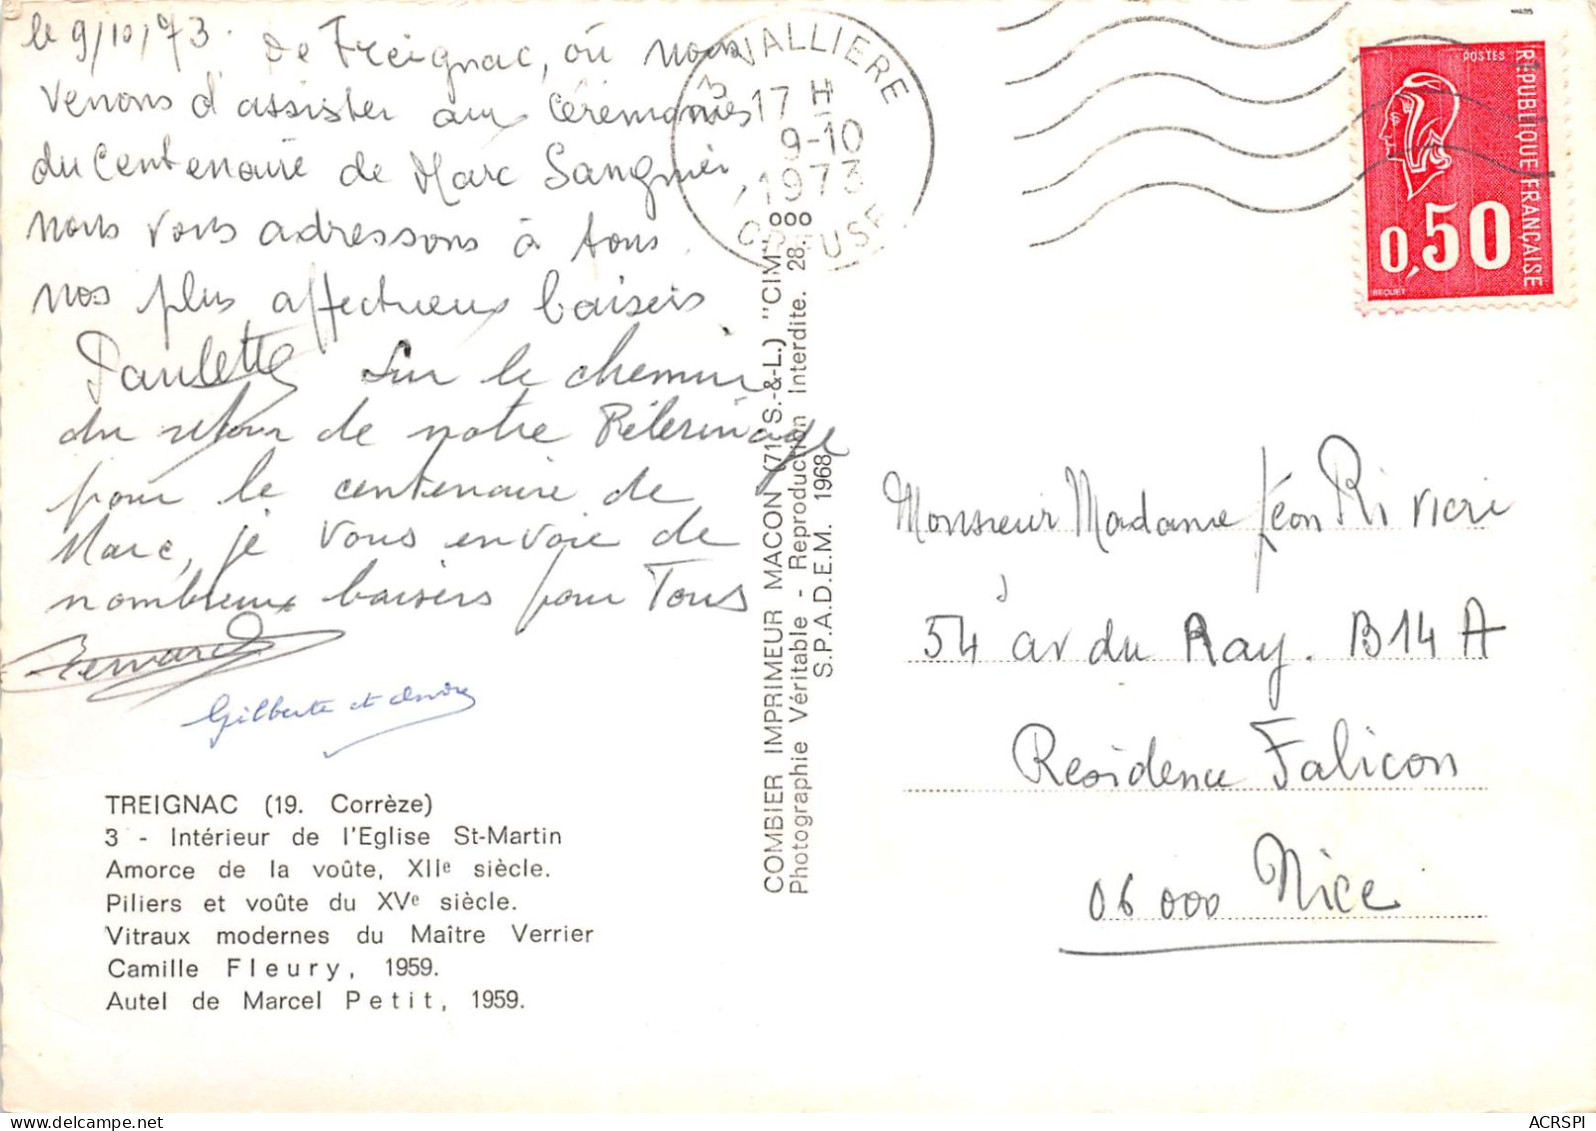 le 9/10/73. de Treignac, où nous
venons d'assister aux Cérémonies
du Centenaire de Marc Sangnier,
nous vous adressons à tous
nos plus affectueux baisers
Paulette Sur le chemin
du retour de notre Pèlerinage
pour le centenaire de
Marc, je vous envoie de
nombreux baisers pour Tous
Bernard
Gilberte et André
TREIGNAC (19. Corrèze)
3 - Intérieur de l'Eglise St-Martin
Amorce de la voûte, XIIe siècle.
Piliers et voûte du XVe siècle.
Vitraux modernes du Maître Verrier
Camille Fleury, 1959.
Autel de Marcel Petit, 1959.
COMBIER IMPRIMEUR MACON (71 S.-&-L.) "CIM"
Photographie Véritable - Reproduction Interdite. 28.000
S.P.A.D.E.M. 1968
VALLIERE
17 H
9-10
1973
CREUSE
POSTES
REPUBLIQUE FRANÇAISE
0,50
BEQUET
Monsieur Madame Jéan Rivieri
54 av du Ray. B14 A
Residence Falicon
06000 Nice
ACRSPI